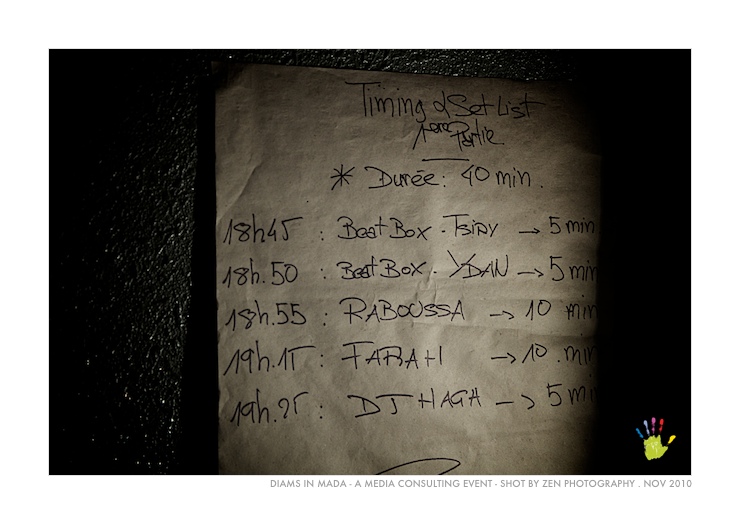 Timing & Set List
1ère Partie
* Durée: 40 min.
18h45 : Beat Box - TSIDY → 5 min
18h.50 : Beat Box - YDAN → 5 min
18h.55 : RABOUSSA → 10 min
19h.15 : FARAH → 10 .min
19h.25 : DJ HAGA → 5 min
DIAMS IN MADA - A MEDIA CONSULTING EVENT - SHOT BY ZEN PHOTOGRAPHY . NOV 2010